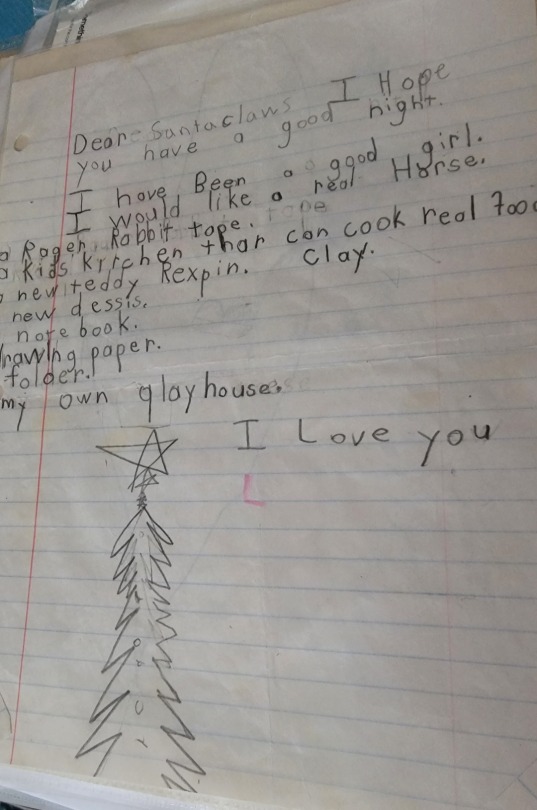 Dear Santaclaws I Hope
you have a good night.
I have Been a good girl.
I would like a real Horse.
a Roger Rabbit tape.
a Kids' kitchen that can cook real food
new teddy Rexpin. Clay.
new dessis.
note book.
drawing paper.
folder.
my own playhouse.
I Love you